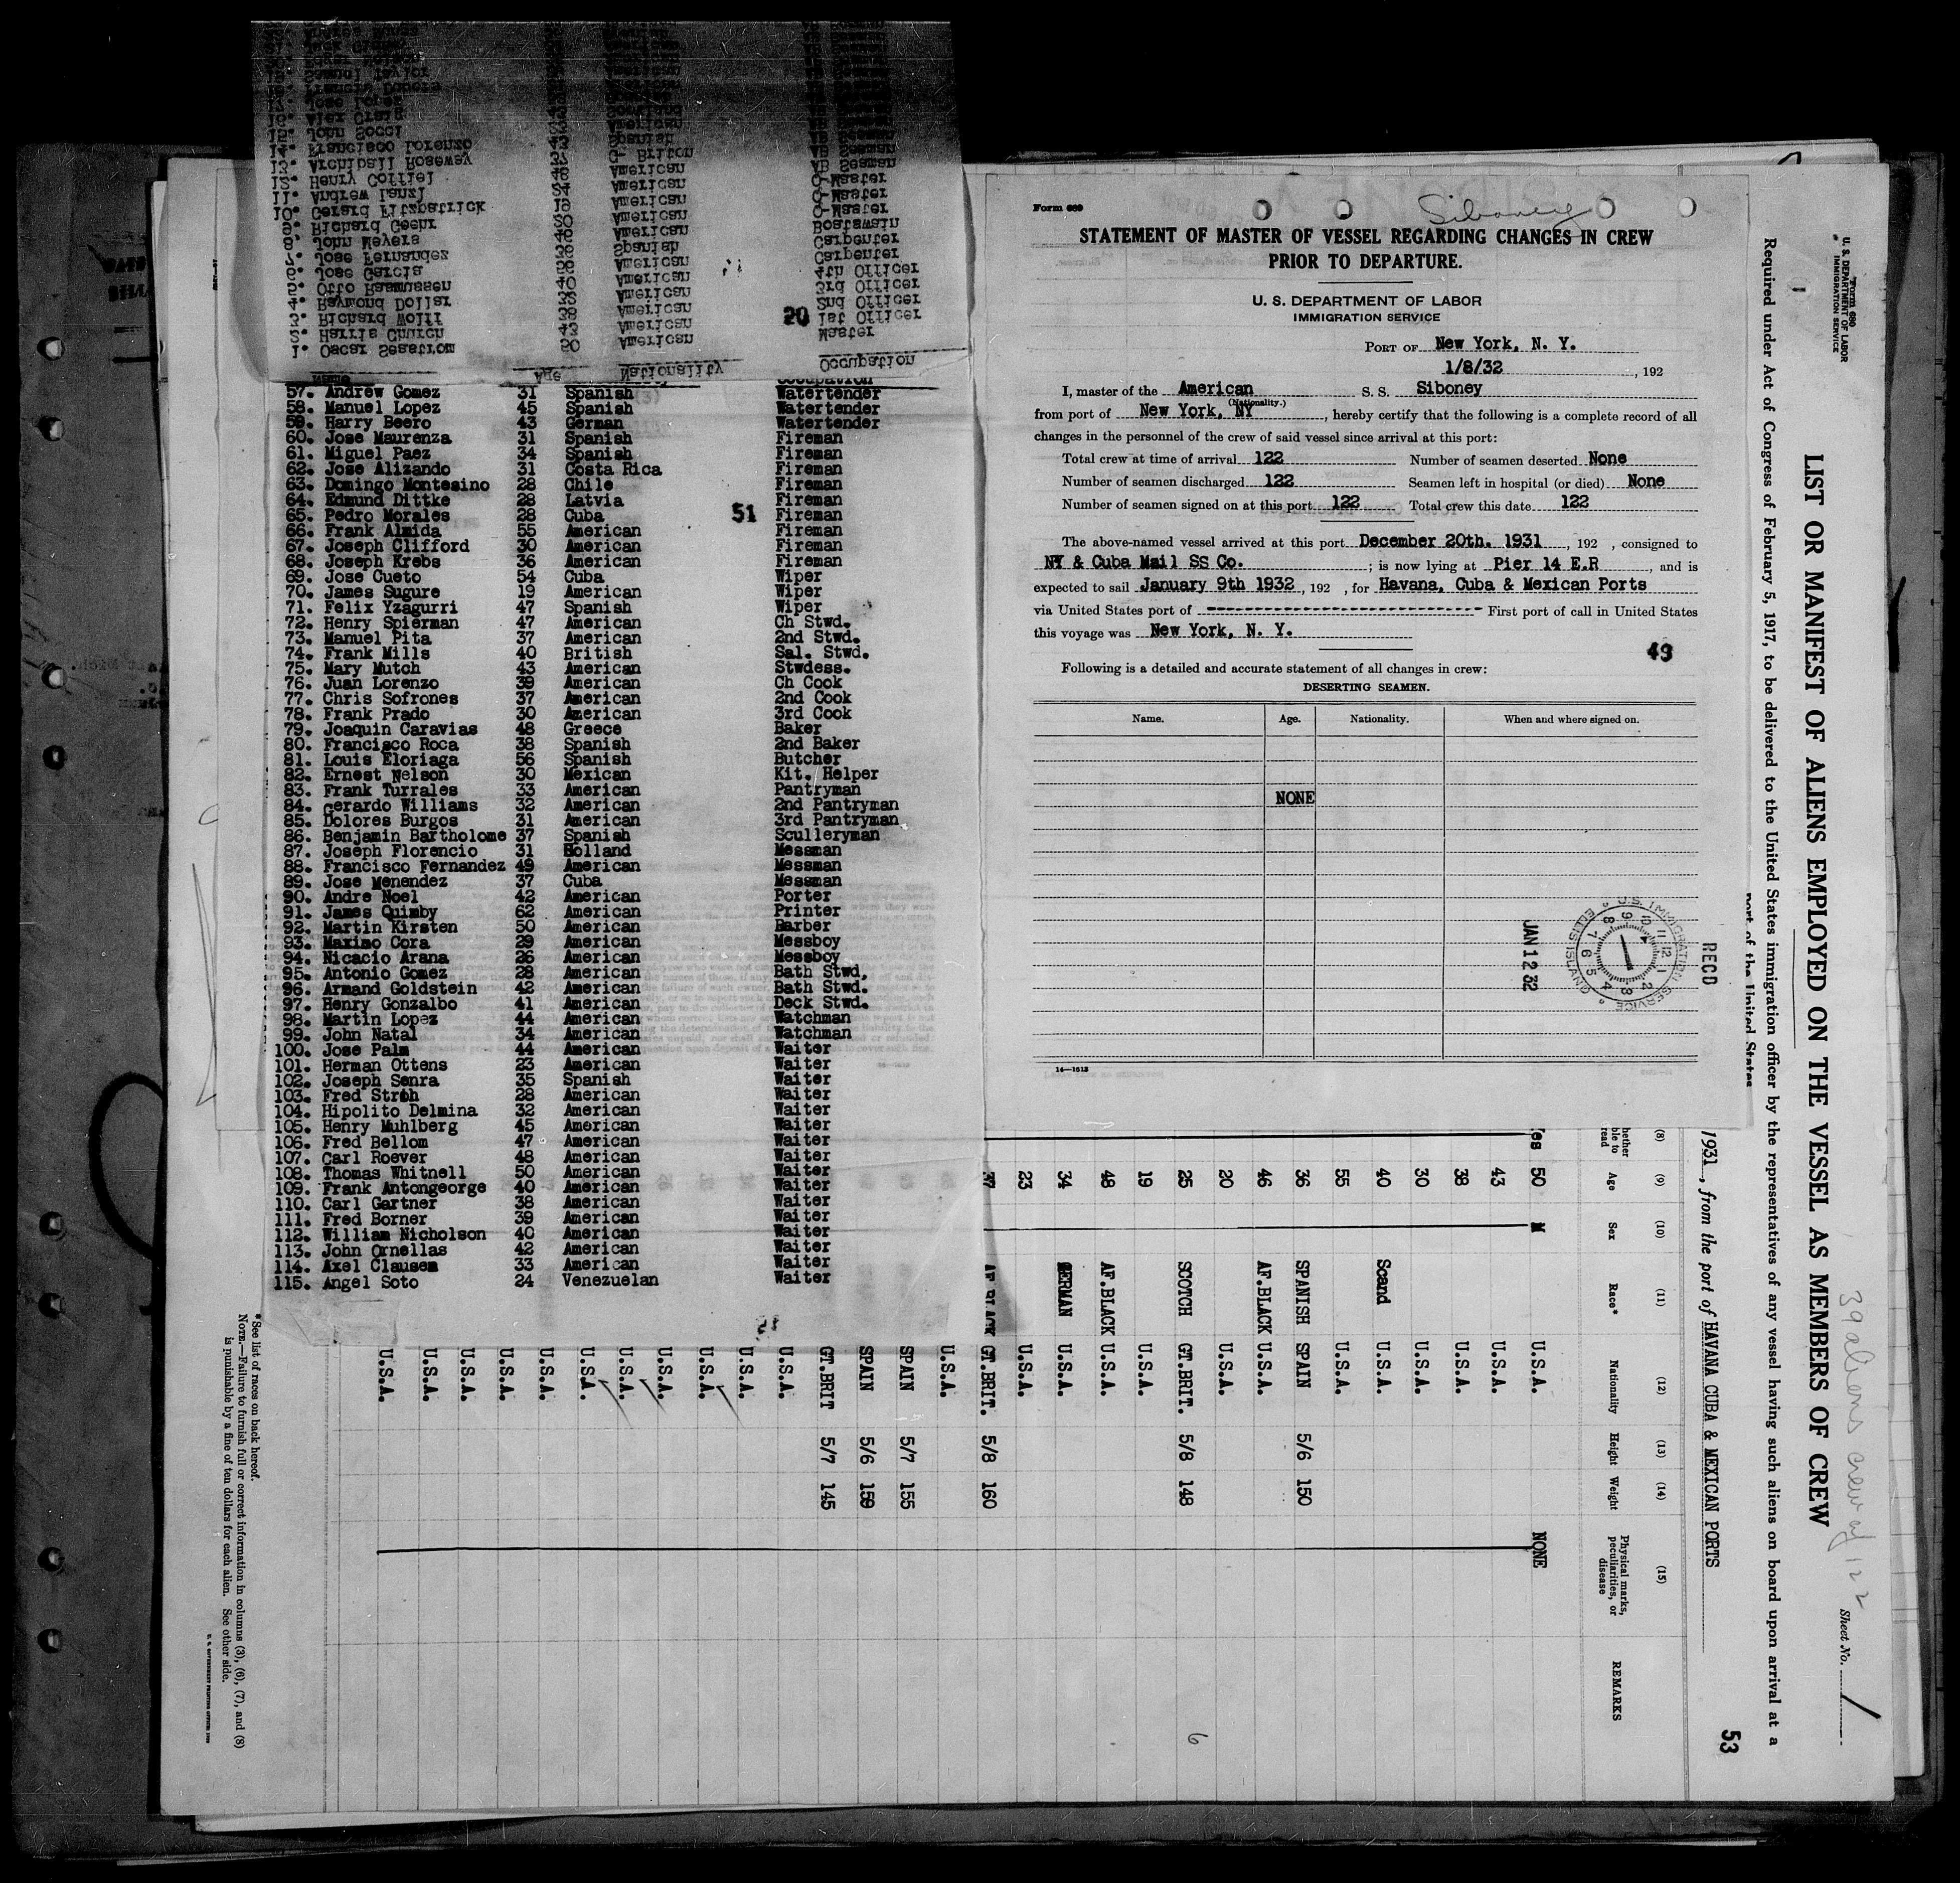 Form 689
Siboney
STATEMENT OF MASTER OF VESSEL REGARDING CHANGES IN CREW
PRIOR TO DEPARTURE.
U. S. DEPARTMENT OF LABOR
IMMIGRATION SERVICE
PORT OF New York, N. Y.
1/8/32, 192
I, master of the American S. S. Siboney
(Nationality.)
from port of New York, NY, hereby certify that the following is a complete record of all
changes in the personnel of the crew of said vessel since arrival at this port:
Total crew at time of arrival 122 Number of seamen deserted None
Number of seamen discharged 122 Seamen left in hospital (or died) None
Number of seamen signed on at this port 122 Total crew this date 122
The above-named vessel arrived at this port December 20th. 1931, 192 , consigned to
NY & Cuba Mail SS Co. ; is now lying at Pier 14 E.R , and is
expected to sail January 9th 1932, 192 , for Havana, Cuba & Mexican Ports
via United States port of ------------------------------ First port of call in United States
this voyage was New York, N. Y.
49
Following is a detailed and accurate statement of all changes in crew:
DESERTING SEAMEN.
Name. Age. Nationality. When and where signed on.
NONE
14—1513
RECD
U.S. IMMIGRATION SERVICE ELLIS ISLAND
JAN 12 32
Age Nationality Occupation
1. Oscar Seastrom 50 American Master
2. Harris Church 43 American 1st Officer
20
3. Richard Wolff 38 American 2nd Officer
4. Raymond Dollar American 3rd Officer
5. Otto Rasmussen 40 American 4th Officer
6. Jose Garcia American Carpenter
7. Jose Fernandez 36 Spanish Carpenter
8. John Meyers 46 American Boatswain
9. Richard Geehr 20 American Q-Master
10. Gerard Fitzpatrick 19 American Q-Master
11. Andrew Lanzi American Q-Master
12. Henry Coffiel American AB Seaman
13. Archiball Roseway G. Briton AB Seaman
14. Francisco Lorenzo Spanish
15. John Socci American
16. Alex Craig
17. Jose Lopez
18. Francis Dubois
19. Samuel Taylor
57. Andrew Gomez 31 Spanish Watertender
58. Manuel Lopez 45 Spanish Watertender
59. Harry Beero 43 German Watertender
60. Jose Maurenza 31 Spanish Fireman
61. Miguel Paez 34 Spanish Fireman
62. Jose Alizando 31 Costa Rica Fireman
63. Domingo Montesino 28 Chile Fireman
64. Edmund Dittke 28 Latvia Fireman
65. Pedro Morales 28 Cuba 51 Fireman
66. Frank Almida 55 American Fireman
67. Joseph Clifford 30 American Fireman
68. Joseph Krebs 36 American Fireman
69. Jose Cueto 54 Cuba Wiper
70. James Sugure 19 American Wiper
71. Felix Yzagurri 47 Spanish Wiper
72. Henry Spierman 47 American Ch Stwd.
73. Manuel Pita 37 American 2nd Stwd.
74. Frank Mills 40 British Sal. Stwd.
75. Mary Mutch 43 American Stwdess.
76. Juan Lorenzo 39 American Ch Cook
77. Chris Sofrones 37 American 2nd Cook
78. Frank Prado 30 American 3rd Cook
79. Joaquin Caravias 48 Greece Baker
80. Francisco Roca 38 Spanish 2nd Baker
81. Louis Eloriaga 56 Spanish Butcher
82. Ernest Nelson 30 Mexican Kit. Helper
83. Frank Turrales 33 American Pantryman
84. Gerardo Williams 32 American 2nd Pantryman
85. Dolores Burgos 31 American 3rd Pantryman
86. Benjamin Bartholome 37 Spanish Sculleryman
87. Joseph Florencio 31 Holland Messman
88. Francisco Fernandez 49 American Messman
89. Jose Menendez 37 Cuba Messman
90. Andre Noel 42 American Porter
91. James Quimby 62 American Printer
92. Martin Kirsten 50 American Barber
93. Maximo Cora 29 American Messboy
94. Nicacio Arana 26 American Messboy
95. Antonio Gomez 28 American Bath Stwd.
96. Armand Goldstein 42 American Bath Stwd.
97. Henry Gonzalbo 41 American Deck Stwd.
98. Martin Lopez 44 American Watchman
99. John Natal 34 American Watchman
100. Jose Palm 44 American Waiter
101. Herman Ottens 23 American Waiter
102. Joseph Senra 35 Spanish Waiter
103. Fred Stroh 28 American Waiter
104. Hipolito Delmina 32 American Waiter
105. Henry Muhlberg 45 American Waiter
106. Fred Bellom 47 American Waiter
107. Carl Roever 48 American Waiter
108. Thomas Whitnell 50 American Waiter
109. Frank Antongeorge 40 American Waiter
110. Carl Gartner 38 American Waiter
111. Fred Borner 39 American Waiter
112. William Nicholson 40 American Waiter
113. John Ornellas 42 American Waiter
114. Axel Clausen 33 American Waiter
115. Angel Soto 24 Venezuelan Waiter
Form 680
U. S. DEPARTMENT OF LABOR
IMMIGRATION SERVICE
39 aliens crew of 122
Sheet No. 1
LIST OR MANIFEST OF ALIENS EMPLOYED ON THE VESSEL AS MEMBERS OF CREW
Required under Act of Congress of February 5, 1917, to be delivered to the United States immigration officer by the representatives of any vessel having such aliens on board upon arrival at a
port of the United States
53
1931, from the port of HAVANA CUBA & MEXICAN PORTS
(8) (9) (10) (11) (12) (13) (14) (15)
Age Sex Race* Nationality Height Weight Physical marks, peculiarities, or disease REMARKS
Yes 50 M U.S.A. NONE
43 U.S.A.
38 U.S.A.
30 U.S.A.
40 Scand U.S.A.
55 U.S.A.
36 SPANISH SPAIN 5/6 150
46 AF.BLACK U.S.A.
20 U.S.A.
25 SCOTCH GT.BRIT. 5/8 148 6
19 U.S.A.
48 AF.BLACK U.S.A.
34 GERMAN U.S.A.
23 U.S.A.
AF.BLACK GT.BRIT. 5/8 160
U.S.A.
SPAIN 5/7 155
SPAIN 5/6 159
GT.BRIT 5/7 145
U.S.A.
U.S.A.
U.S.A.
U.S.A.
U.S.A.
U.S.A.
U.S.A.
U.S.A.
U.S.A.
U.S.A.
U.S.A.
*See list of races on back hereof.
NOTE.—Failure to furnish full or correct information in columns (3), (6), (7), and (8)
is punishable by a fine of ten dollars for each alien. See other side.